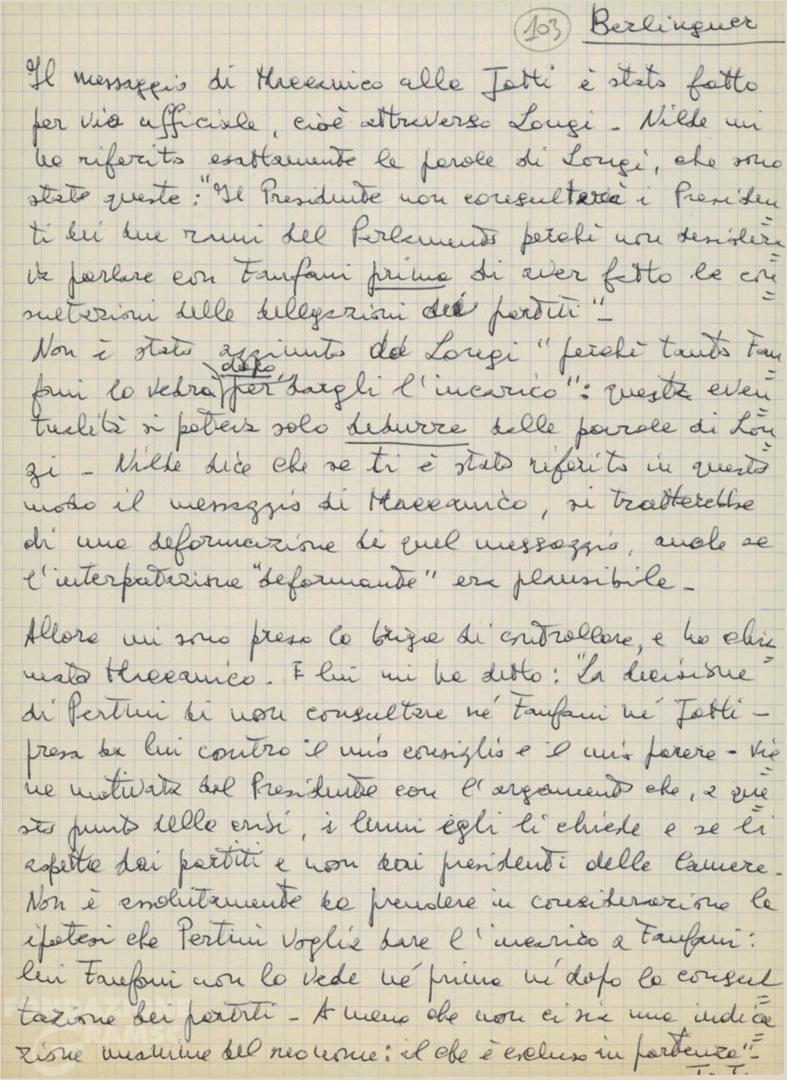 103 Berlinguer
Il messaggio di Maccanico alla Jotti è stato fatto
per via ufficiale, cioè attraverso Longi - Nilde mi
ha riferito esattamente le parole di Longi, che sono
state queste: "Il Presidente non consulterà i Presiden
ti dei due rami del Parlamento perché non desidera
va parlare con Fanfani prima di aver fatto le con
sultazioni delle delegazioni dei partiti" -
Non è stato aggiunto da Longi "perché tanto Fan
dopo
fani lo vedrà per dargli l'incarico": questa even
tualità si poteva solo dedurre dalle parole di Lon
gi - Nilde dice che se ti è stato riferito in questo
modo il messaggio di Maccanico, si tratterebbe
di una deformazione di quel messaggio, anche se
l'interpretazione "deformante" era plausibile -
Allora mi sono preso la briga di controllare, e ho chia
mato Maccanico. E lui mi ha detto: "La decisione
di Pertini di non consultare né Fanfani né Jotti -
presa da lui contro il mio consiglio e il mio parere - vie
ne motivata dal Presidente con l'argomento che, a que
sto punto della crisi, i lumi egli li chiede e se li
aspetta dai partiti e non dai presidenti delle Camere.
Non è assolutamente da prendere in considerazione la
ipotesi che Pertini voglia dare l'incarico a Fanfani:
lui Fanfani non lo vede né prima né dopo la consul
tazione dei partiti - A meno che non ci sia una indica
zione unanime del suo nome: il che è escluso in partenza" -
T. T.
FONDAZIONE
GRAMSCI